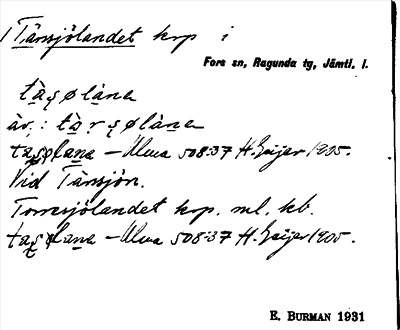 Tänsjölandet krp i
Fors sn, Ragunda tg, Jämtl. l.
tàʂølàna
äv.: tà r ʂølàna
taʂølana – Ulma 508:37 H. Geijer 1905.
Vid Tänsjön.
Torresjölandet krp. ml. kb.
taʂølana – Ulma 508:37 H. Geijer 1905.
E. BURMAN 1931